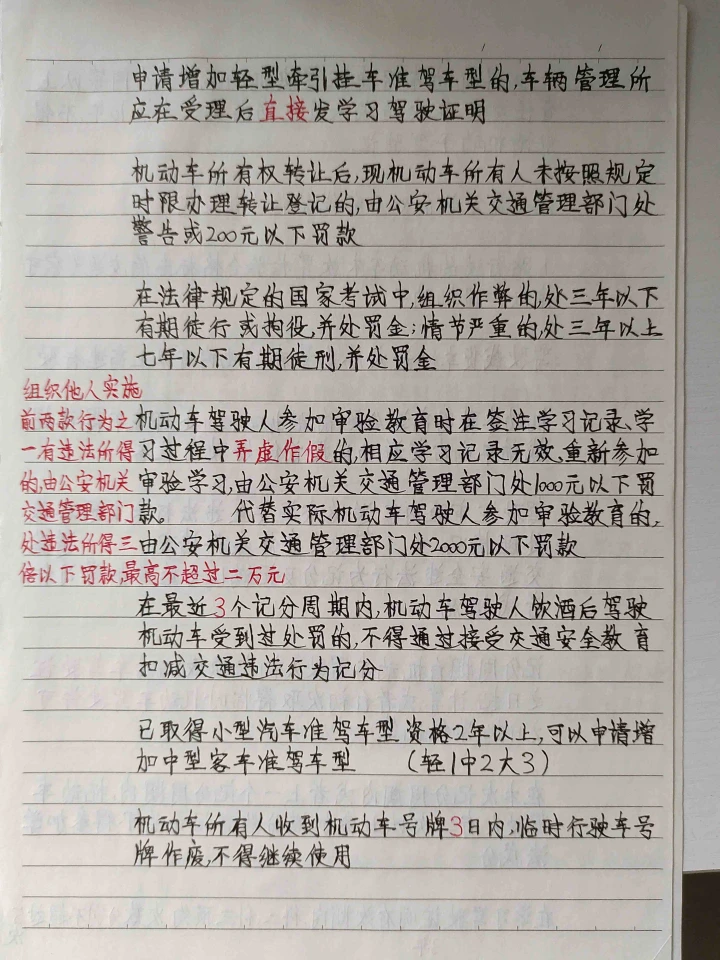 申请增加轻型牵引挂车准驾车型的,车辆管理所
应在受理后直接发学习驾驶证明
机动车所有权转让后,现机动车所有人未按照规定
时限办理转让登记的,由公安机关交通管理部门处
警告或200元以下罚款
在法律规定的国家考试中,组织作弊的,处三年以下
有期徒行或拘役,并处罚金;情节严重的,处三年以上
七年以下有期徒刑,并处罚金
组织他人实施
前两款行为之
一有违法所得
的,由公安机关
交通管理部门
处违法所得三
倍以下罚款,最高不超过二万元
机动车驾驶人参加审验教育时在签注学习记录、学
习过程中弄虚作假的,相应学习记录无效,重新参加
审验学习,由公安机关交通管理部门处1000元以下罚
款。 代替实际机动车驾驶人参加审验教育的,
由公安机关交通管理部门处2000元以下罚款
在最近3个记分周期内,机动车驾驶人饮酒后驾驶
机动车受到过处罚的,不得通过接受交通安全教育
扣减交通违法行为记分
已取得小型汽车准驾车型资格2年以上,可以申请增
加中型客车准驾车型 (轻1中2大3)
机动车所有人收到机动车号牌3日内,临时行驶车号
牌作废,不得继续使用